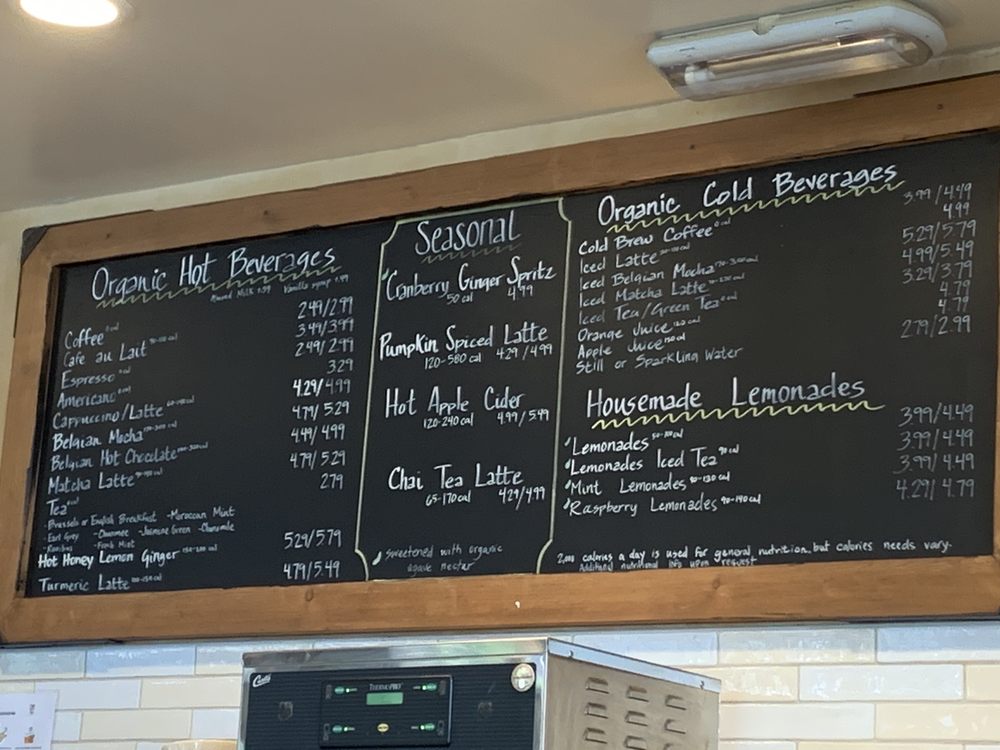 Organic Hot Beverages
Almond Milk 1.99 Vanilla syrup 1.99
Coffee 0 cal 2.49/2.99
Cafe au Lait 3.49/3.99
Espresso 0 cal 2.49/2.99
Americano 0 cal 3.29
Cappuccino/Latte 4.29/4.99
Belgian Mocha 4.79/5.29
Belgian Hot Chocolate 4.49/4.99
Matcha Latte 4.79/5.29
Tea 0 cal 2.79
-Brussels or English Breakfast -Moroccan Mint
-Earl Grey -Chunmee -Jasmine Green -Chamomile
-Rooibos -Fresh Mint
Hot Honey Lemon Ginger 5.29/5.79
Turmeric Latte 4.79/5.49
Seasonal
Cranberry Ginger Spritz
50 cal 4.99
Pumpkin Spiced Latte
120-580 cal 4.29/4.99
Hot Apple Cider
120-240 cal 4.99/5.49
Chai Tea Latte
65-170 cal 4.29/4.99
sweetened with organic
agave nectar
Organic Cold Beverages
Cold Brew Coffee 0 cal 3.99/4.49
Iced Latte 4.99
Iced Belgian Mocha 5.29/5.79
Iced Matcha Latte 4.99/5.49
Iced Tea/Green Tea 0 cal 3.29/3.79
Orange Juice 4.79
Apple Juice 4.79
Still or Sparkling Water 2.79/2.99
Housemade Lemonades
Lemonades 3.99/4.49
Lemonades Iced Tea 3.99/4.49
Mint Lemonades 3.99/4.49
Raspberry Lemonades 90-140 cal 4.29/4.79
2,000 calories a day is used for general nutrition, but calories needs vary.
Additional nutritional info upon request
Curtis
ThermoPro